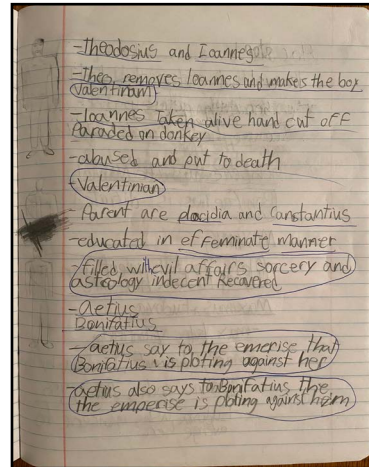 -theodosius and Ioannes
-Theo, removes Ioannes and makes the boy
Valentinian
-Ioannes taken alive hand cut off
Paraded on donkey
-abused and put to death
-Valentinian
-Parent are placidia and constantius
-educated in effeminate manner
filled with evil affairs sorcery and
astrology indecent Recovered
-Aetius
Bonifatius
-aetius say to the emerise that
Bonifatius is ploting against her
-aetius also says to Bonifatius the
the emperise is ploting against